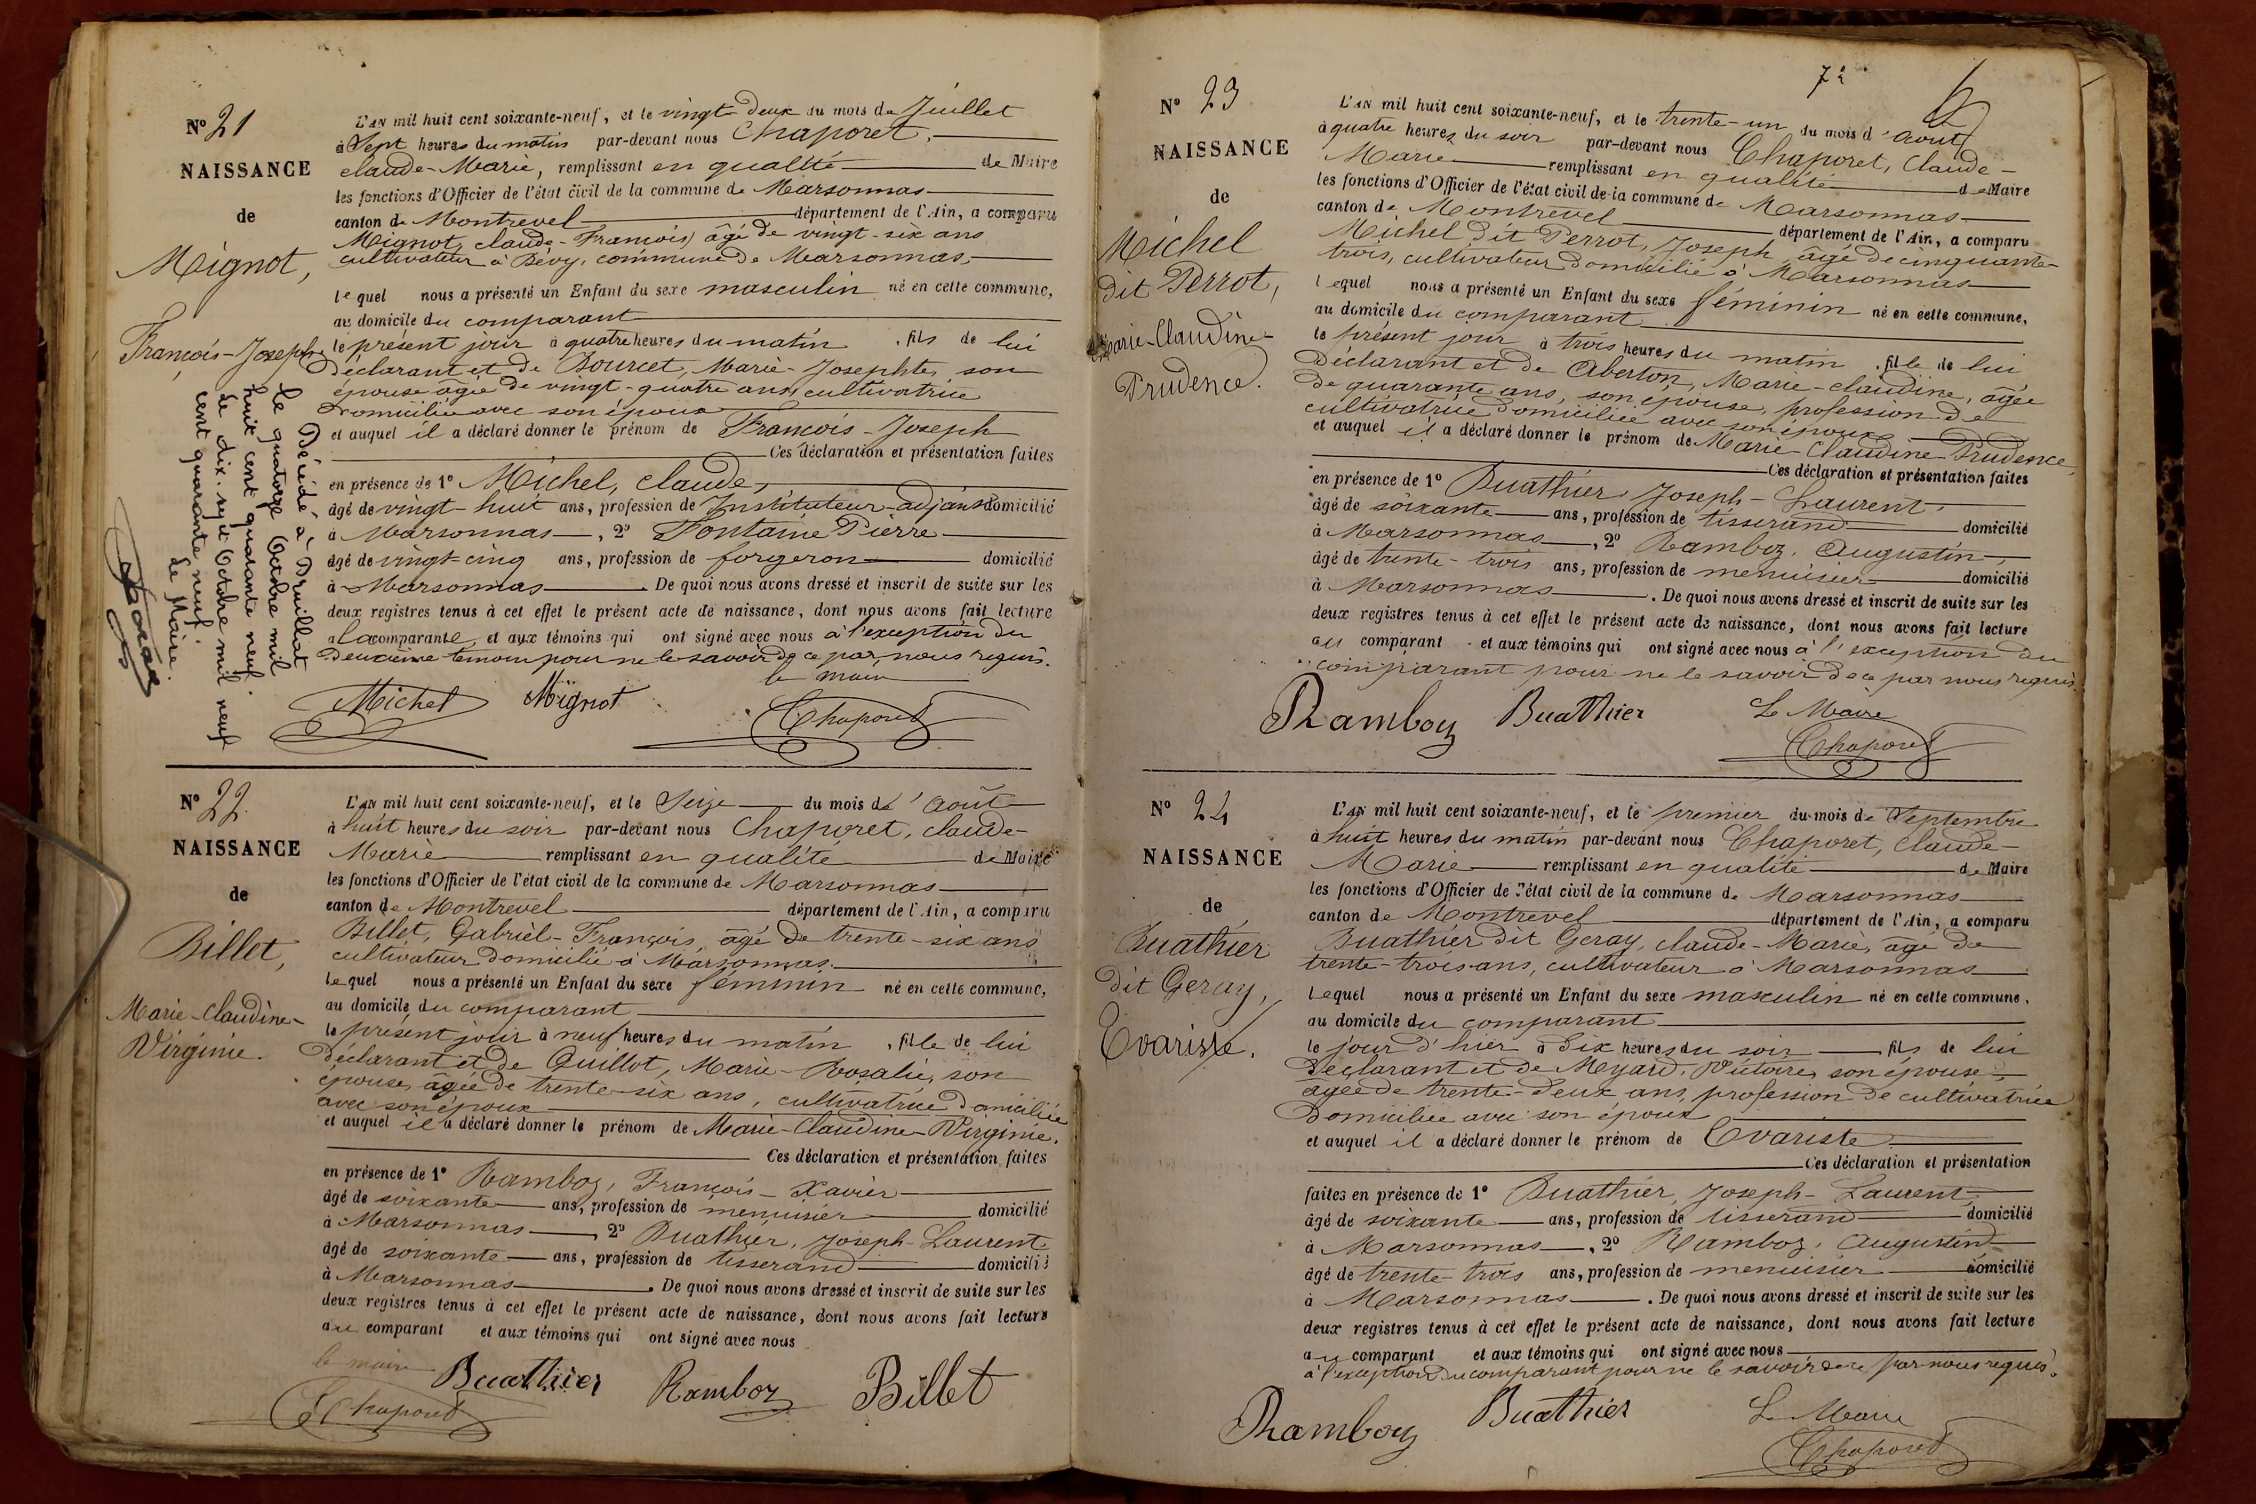 N° 21
NAISSANCE
de
Mignot,
François-Joseph
Décédé à Druillat
le quatorze Octobre mil
huit cent quarante neuf.
Le dix-sept Octobre mil neuf
cent quarante neuf.
Le Maire.
L'AN mil huit cent soixante-neuf, et le vingt-deux du mois de Juillet
à Sept heures du matin par-devant nous Chaporet,
claude-Marie, remplissant en qualité de Maire
les fonctions d'Officier de l'état civil de la commune de Marsonnas
canton de Montrevel département de l'Ain, a comparu
Mignot, claude-François, âgé de vingt-six ans
cultivateur à Bévy, commune de Marsonnas,
lequel nous a présenté un Enfant du sexe masculin né en cette commune,
au domicile du comparant
le présent jour à quatre heures du matin, fils de lui
déclarant et de Bourcet, Marie-Josephte, son
épouse âgée de vingt-quatre ans, cultivatrice
domiciliée avec son époux
et auquel il a déclaré donner le prénom de François-Joseph
Ces déclaration et présentation faites
en présence de 1° Michel, Claude,
âgé de vingt-huit ans, profession de Instituteur-adjoint domicilié
à Marsonnas, 2° Fontaine Pierre
âgé de vingt-cinq ans, profession de forgeron domicilié
à Marsonnas. De quoi nous avons dressé et inscrit de suite sur les
deux registres tenus à cet effet le présent acte de naissance, dont nous avons fait lecture
a la comparante, et aux témoins qui ont signé avec nous à l'exception du
deuxième témoin pour ne le savoir de ce par nous requis.
le maire
Michel Mignot Chaporet
N° 22
NAISSANCE
de
Billet,
Marie-Claudine-
Virginie.
L'AN mil huit cent soixante-neuf, et le Seize du mois d'Août
à huit heures du soir par-devant nous Chaporet, claude-
Marie remplissant en qualité de Maire
les fonctions d'Officier de l'état civil de la commune de Marsonnas
canton de Montrevel département de l'Ain, a comparu
Billet, Gabriel-François, âgé de trente-six ans
cultivateur domicilié à Marsonnas.
lequel nous a présenté un Enfant du sexe féminin né en cette commune,
au domicile du comparant
le présent jour à neuf heures du matin, fille de lui
déclarant et de Quillot, Marie-Rosalie, son
épouse, âgée de trente-six ans, cultivatrice domiciliée
avec son époux
et auquel il a déclaré donner le prénom de Marie-Claudine-Virginie.
Ces déclaration et présentation faites
en présence de 1° Ramboz, François-Xavier
âgé de soixante ans, profession de menuisier domicilié
à Marsonnas, 2° Buathier, Joseph-Laurent
âgé de soixante ans, profession de tisserand domicilié
à Marsonnas. De quoi nous avons dressé et inscrit de suite sur les
deux registres tenus à cet effet le présent acte de naissance, dont nous avons fait lecture
au comparant et aux témoins qui ont signé avec nous
le maire Buathier Ramboz Billet
Chaporet
72
N° 23
NAISSANCE
de
Michel
dit Perrot,
Marie-Claudine-
Prudence.
L'AN mil huit cent soixante-neuf, et le trente-un du mois d'août
à quatre heures du soir par-devant nous Chaporet, Claude-
Marie remplissant en qualité de Maire
les fonctions d'Officier de l'état civil de la commune de Marsonnas
canton de Montrevel département de l'Ain, a comparu
Michel dit Perrot, Joseph, âgé de cinquante-
trois, cultivateur domicilié à Marsonnas
lequel nous a présenté un Enfant du sexe féminin né en cette commune,
au domicile du comparant
le présent jour à trois heures du matin, fille de lui
déclarant et de Aberton, Marie-claudine, âgée
de quarante ans, son épouse, profession de
cultivatrice domiciliée avec son époux
et auquel il a déclaré donner le prénom de Marie-Claudine-Prudence,
Ces déclaration et présentation faites
en présence de 1° Buathier Joseph-Laurent,
âgé de soixante ans, profession de tisserand domicilié
à Marsonnas, 2° Ramboz, Augustin,
âgé de trente-trois ans, profession de menuisier domicilié
à Marsonnas. De quoi nous avons dressé et inscrit de suite sur les
deux registres tenus à cet effet le présent acte de naissance, dont nous avons fait lecture
au comparant et aux témoins qui ont signé avec nous à l'exception du
comparant pour ne le savoir de ce par nous requis.
Ramboz Buathier Le Maire
Chaporet
N° 24
NAISSANCE
de
Buathier
dit Geray,
Evariste.
L'AN mil huit cent soixante-neuf, et le premier du mois de Septembre
à huit heures du matin par-devant nous Chaporet, Claude-
Marie remplissant en qualité de Maire
les fonctions d'Officier de l'état civil de la commune de Marsonnas
canton de Montrevel département de l'Ain, a comparu
Buathier dit Geray, claude-Marie, âgé de
trente-trois ans, cultivateur à Marsonnas
lequel nous a présenté un Enfant du sexe masculin né en cette commune.
au domicile du comparant
le jour d'hier à dix heures du soir, fils de lui
déclarant et de Meyard, Victoire, son épouse,
âgée de trente-deux ans, profession de cultivatrice
domiciliée avec son époux
et auquel il a déclaré donner le prénom de Evariste
Ces déclaration et présentation
faites en présence de 1° Buathier, Joseph-Laurent,
âgé de soixante ans, profession de tisserand domicilié
à Marsonnas, 2° Ramboz, Augustin
âgé de trente-trois ans, profession de menuisier domicilié
à Marsonnas. De quoi nous avons dressé et inscrit de suite sur les
deux registres tenus à cet effet le présent acte de naissance, dont nous avons fait lecture
au comparant et aux témoins qui ont signé avec nous
à l'exception du comparant pour ne le savoir de ce par nous requis.
Ramboz Buathier Le Maire
Chaporet